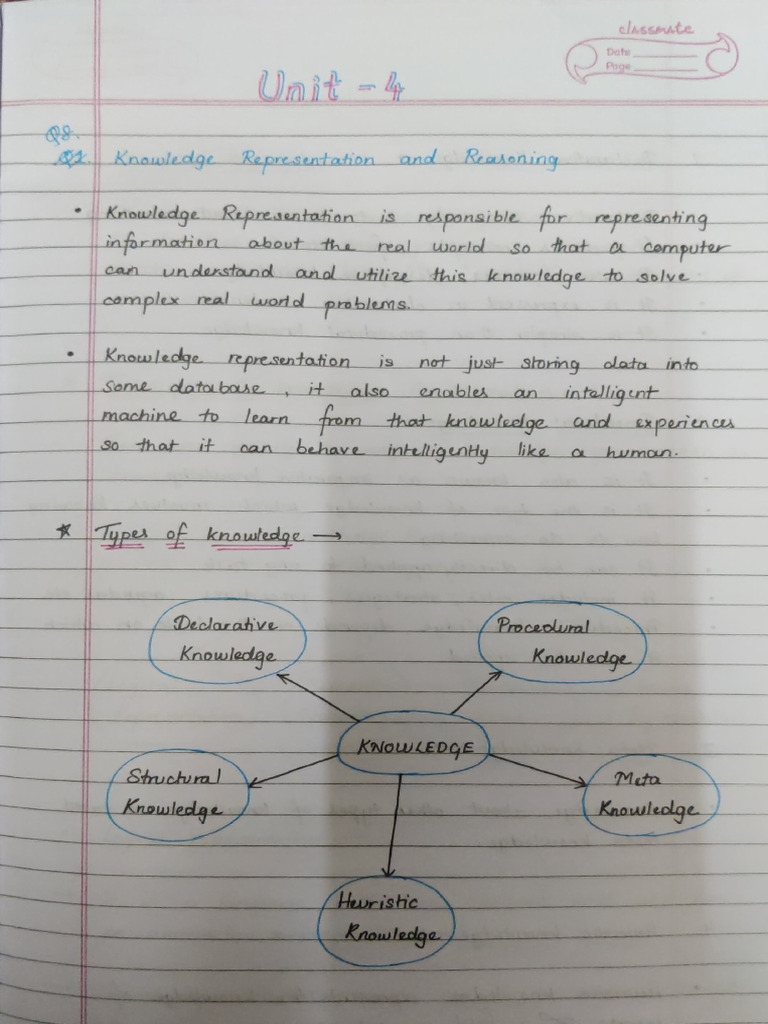 classmate
Date
Page
Unit - 4
Q8.
Q1. Knowledge Representation and Reasoning
• Knowledge Representation is responsible for representing
information about the real world so that a computer
can understand and utilize this knowledge to solve
complex real world problems.
• Knowledge representation is not just storing data into
some database, it also enables an intelligent
machine to learn from that knowledge and experiences
so that it can behave intelligently like a human.
* Types of knowledge →
Declarative
Knowledge
Procedural
Knowledge
KNOWLEDGE
Structural
Knowledge
Meta
Knowledge
Heuristic
Knowledge